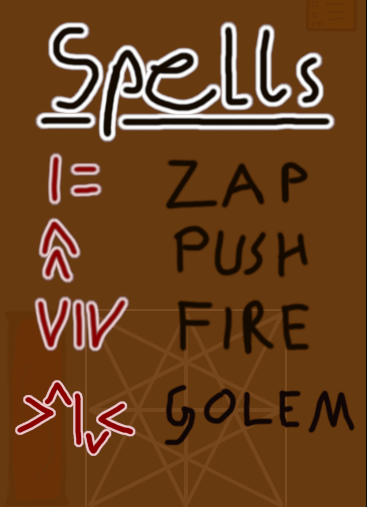 Spells
I= ZAP
^^ PUSH
VIV FIRE
>^|v< GOLEM